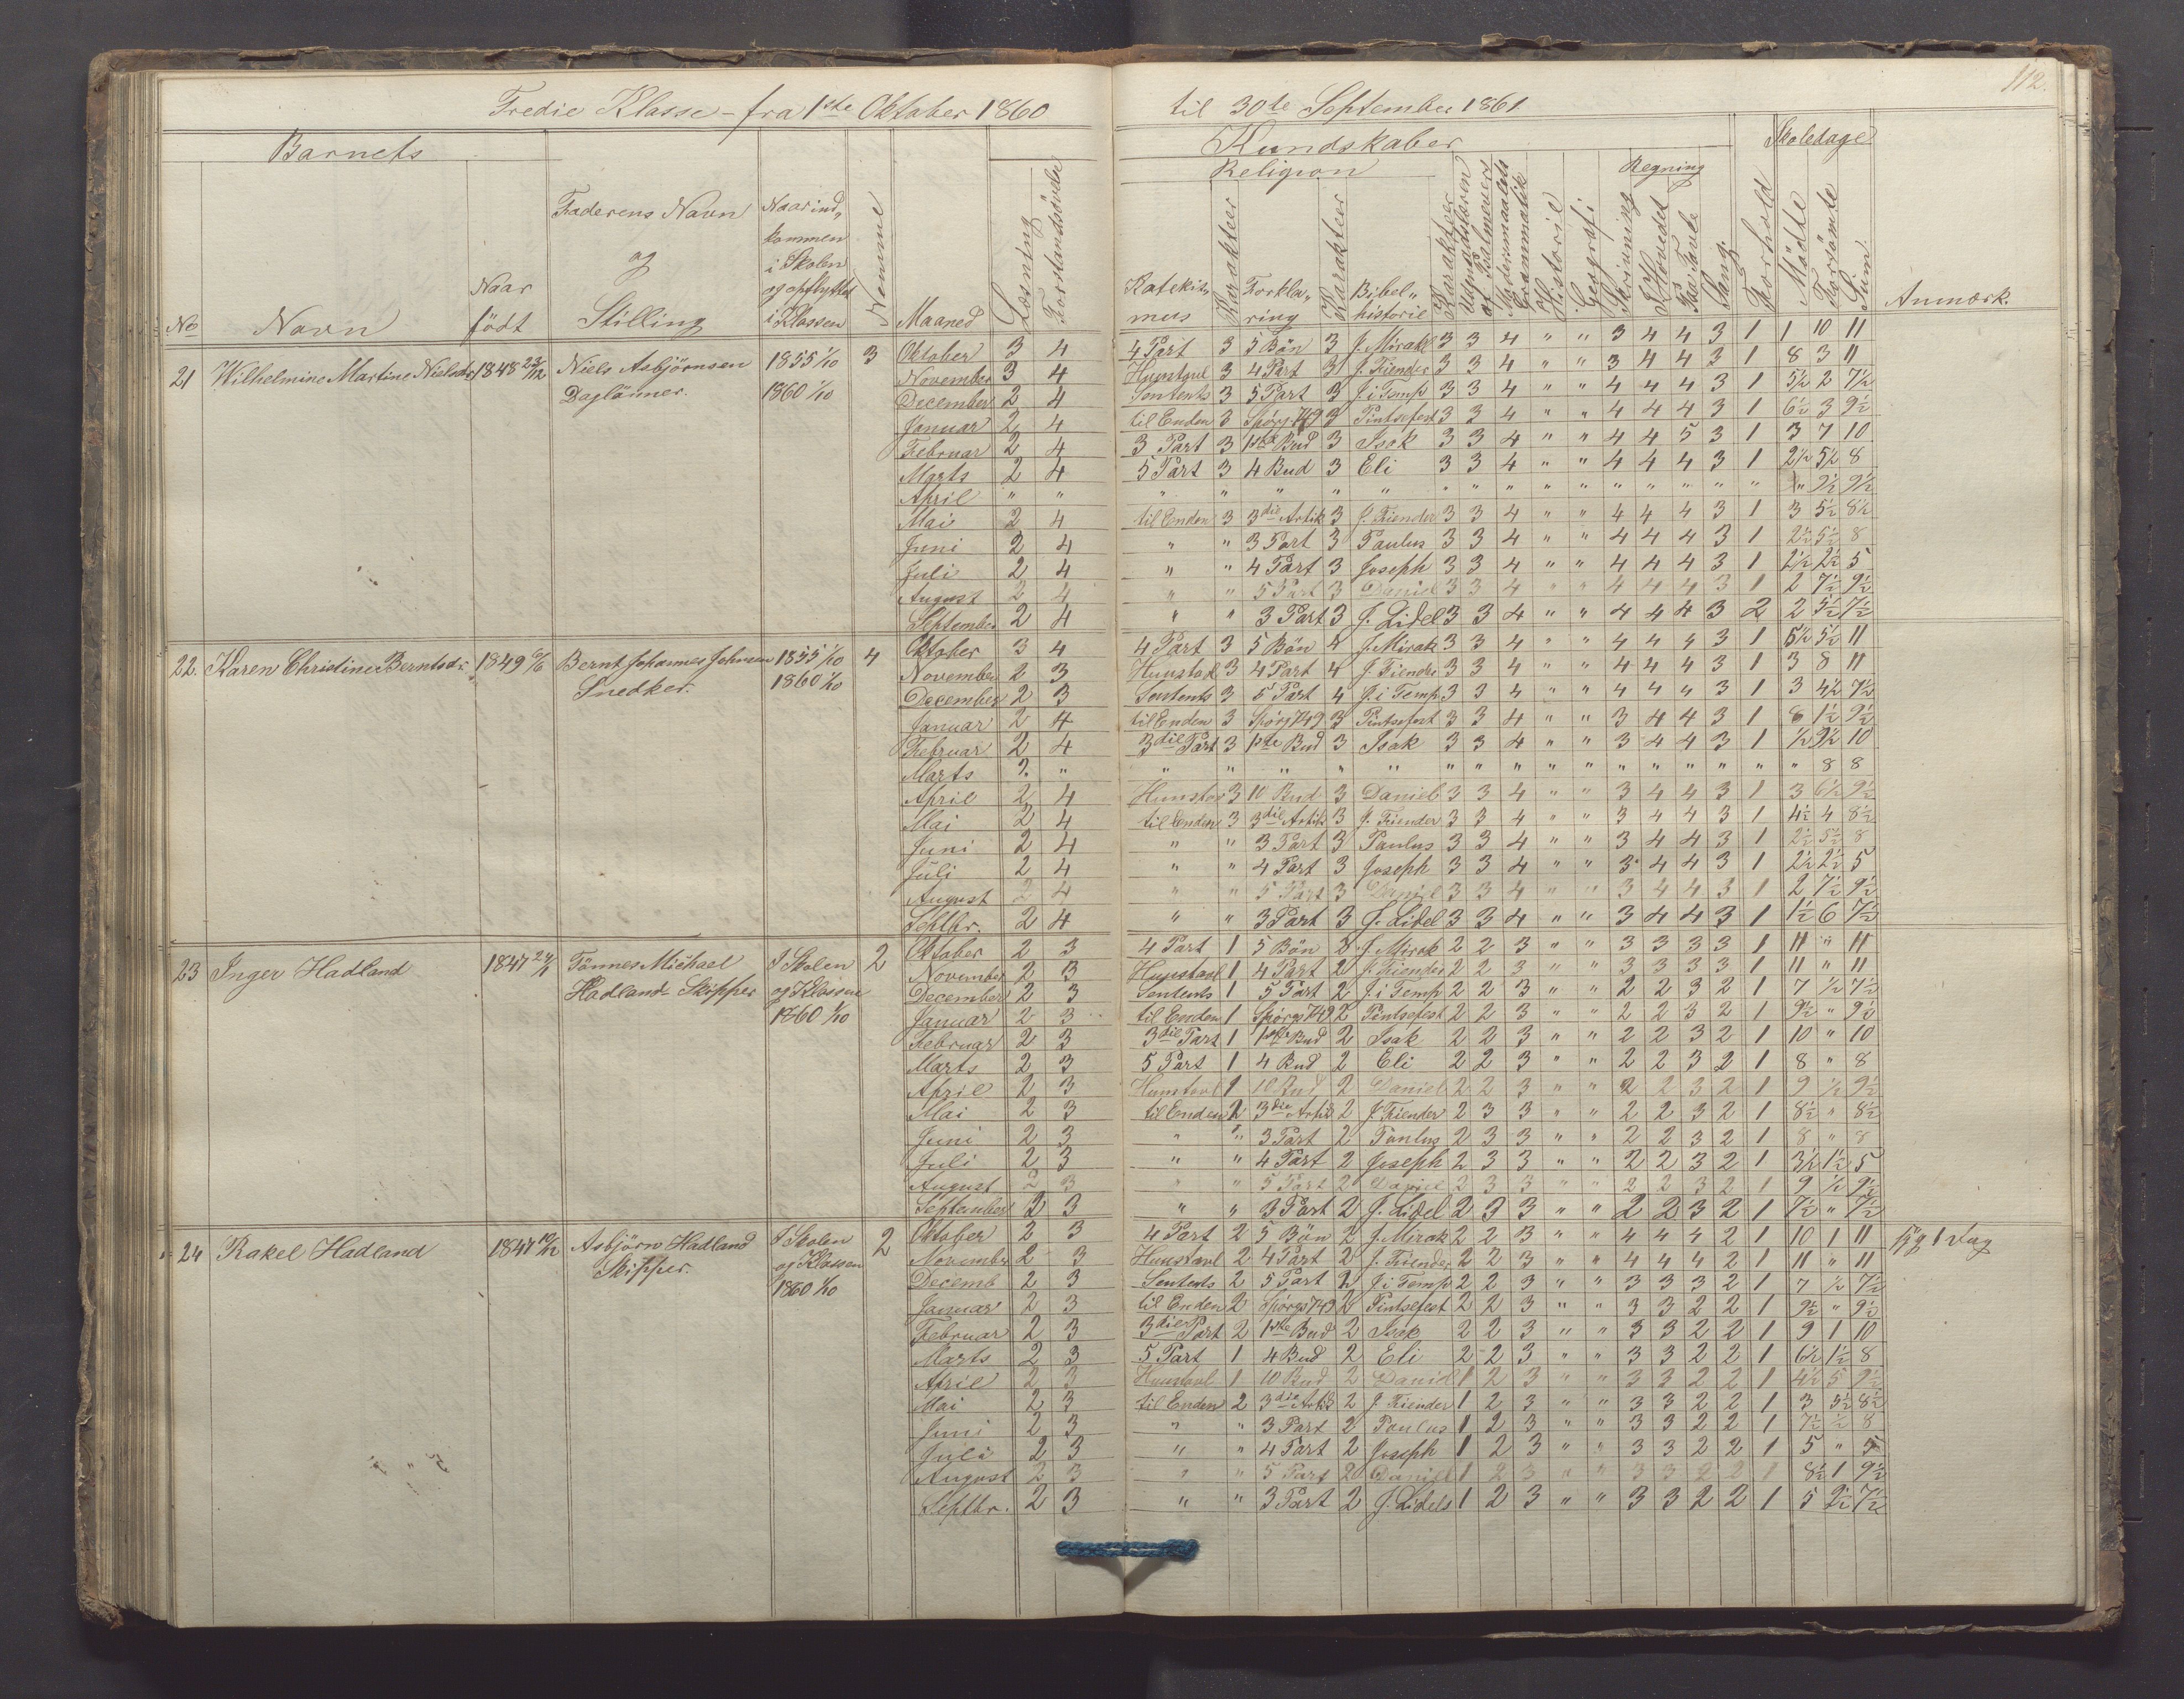 112.
Tredie Klasse - fra 1ste Oktober 1860 til 30te September 1861
Barnets
Kundskaber
Skoledage
Religion
Regning
No
Navn
Naar födt
Faderens Navn og Stilling
Naar ind„ kommen i Skolen og opflyttet i Klassen
Nemme
Maaned
Læsning
Forstandsövelse
Katekis„ mus
Karakteer
Forkla„ ring
Karakteer
Bibel„ historie
Karakteer
Udenadslæren af Psalmevers
Modersmaalets Grammatik
Historie
Geografi
Skrivning
I Hovedet
Paa Tavle
Sang.
Forhold
Mödte
Forsömte
Sum
Anmærk.
21 Wilhelmine Martine Nielsdr 1848 23/12 Niels Asbjörnsen 1855 1/10 3
Daglönner. 1860 1/10
Oktober 3 4 4 Part 3 5 Bön 3 J. Mirakl 3 3 4 " " 3 4 4 3 1 1 10 11
November 3 4 Hunstavl 3 4 Part 3 J. Fiender 3 3 4 " " 3 4 4 3 1 8 3 11
December 2 4 Sentents 3 5 Part 3 J. i Temp 3 3 4 " " 4 4 4 3 1 5½ 2 7½
Januar 2 4 til Enden 3 Spörgs 749 3 Pintsefest 3 3 4 " " 4 4 4 3 1 6½ 3 9½
Februar 2 4 3 Part 3 1ste Bud 3 Isak 3 3 4 " " 4 4 5 3 1 3 7 10
Marts 2 4 5 Part 3 4 Bud 3 Eli 3 3 4 " " 4 4 4 3 1 2½ 5½ 8
April " " " " " " " " " " " " " " " " " " 9½ 9½
Mai 2 4 til Enden 3 3die Artik 3 J. Fiender 3 3 4 " " 4 4 4 3 1 3 5½ 8½
Juni 2 4 " " 3 Part 3 Paulus 3 3 4 " " 4 4 4 3 1 2½ 5½ 8
Juli 2 4 " " 4 Part 3 Joseph 3 3 4 " " 4 4 4 3 1 2½ 2½ 5
August 2 4 " " 5 Part 3 Daniel 3 3 4 " " 4 4 4 3 1 2 7½ 9½
September 2 4 " " 3 Part 3 J. Lidel 3 3 4 " " 4 4 4 3 2 2 5½ 7½
22. Karen Christine Berntsdr 1849 6/6 Bernt Johannes Johnsen 1855 1/10 4
Snedker. 1860 1/10
Oktober 3 4 4 Part 3 5 Bön 4 J. Mirak 3 3 4 " " 4 4 4 3 1 5½ 5½ 11
November 2 3 Hunstak 3 4 Part 4 J. Fiender 3 3 4 " " 4 4 4 3 1 3 8 11
December 2 3 Sentents 3 5 Part 4 J. i Temp 3 3 4 " " 4 4 4 3 1 3 4½ 7½
Januar 2 4 til Enden 3 Spörgs 749 3 Pintsefest 3 3 4 " " 3 4 4 3 1 8 1½ 9½
Februar 2 4 3die Part 3 1ste Bud 3 Isak 3 3 4 " " 3 4 4 3 1 ½ 9½ 10
Marts 2 " " " " " " " " " " " " " " " " " " 8 8
April 2 4 Hunstav 3 10 Bud 3 Daniel 3 3 4 " " 3 4 4 3 1 3 6½ 9½
Mai 2 4 til Enden 3 3die Artik 3 J. Fiender 3 3 4 " " 3 4 4 3 1 4½ 4 8½
Juni 2 4 " " 3 Part 3 Paulus 3 3 4 " " 3 4 4 3 1 2½ 5½ 8
Juli 2 4 " " 4 Part 3 Joseph 3 3 4 " " 3 4 4 3 1 2½ 2½ 5
August 2 4 " " 5 Part 3 Daniel 3 3 4 " " 3 4 4 3 1 2 7½ 9½
Septbr. 2 4 " " 3 Part 3 J. Lidel 3 3 4 " " 3 4 4 3 1 1½ 6 7½
23 Inger Hadland 1847 24/1 Tönnes Michael I Skolen 2
Hadland Skipper og Klassen
1860 1/10
Oktober 2 3 4 Part 1 5 Bön 2 J. Mirak 2 2 3 " " 3 3 3 3 1 11 " 11
November 2 3 Hunstavl 1 4 Part 2 J. Fiender 2 2 3 " " 3 3 3 3 1 11 " 11
December 2 3 Sentents 1 5 Part 2 J. i Temp 2 2 3 " " 2 2 3 2 1 7 ½ 7½
Januar 2 3 til Enden 1 Spörgs 749 2 Pintsefest 2 2 3 " " 2 2 3 2 1 9½ " 9½
Februar 2 3 3die Part 1 1ste Bud 2 Isak 2 2 3 " " 2 2 3 2 1 10 " 10
Marts 2 3 5 Part 1 4 Bud 2 Eli 2 2 3 " " 2 2 3 2 1 8 " 8
April 2 3 Hunstavl 1 10 Bud 2 Daniel 2 2 3 " " 2 2 3 2 1 9 ½ 9½
Mai 2 3 til Enden 2 3die Artik 2 J. Fiender 2 3 3 " " 2 2 3 2 1 8½ " 8½
Juni 2 3 " " 3 Part 2 Paulus 2 3 3 " " 2 2 3 2 1 8 " 8
Juli 2 3 " " 4 Part 2 Joseph 2 3 3 " " 2 2 3 2 1 3½ 1½ 5
August 2 3 " " 5 Part 2 Daniel 2 3 3 " " 2 2 3 2 1 9 ½ 9½
September 2 3 " " 3 Part 2 J. Lidel 2 3 3 " " 2 2 3 2 1 7½ " 7½
24 Rakel Hadland 1847 10/12 Asbjörn Hadland I Skolen 2
Skipper. og Klassen
1860 1/10
Oktober 2 3 4 Part 2 5 Bön 2 J. Mirak 2 2 3 " " 4 4 4 2 1 10 1 11 syg 1 Dag
November 2 3 Hunstavl 2 4 Part 2 J. Fiender 2 2 3 " " 4 4 4 2 1 11 " 11
Decemb 2 3 Sentents 2 5 Part 2 J i Temp 2 2 3 " " 3 3 3 2 1 7 ½ 7½
Januar 2 3 til Enden 2 Spörgs 749 2 Pintsefest 2 2 3 " " 3 3 2 2 1 9½ " 9½
Februar 2 3 3die Part 2 1ste Bud 2 Isak 2 2 3 " " 3 3 2 2 1 9 1 10
Marts 2 3 5 Part 1 4 Bud 2 Eli 2 2 3 " " 3 3 2 2 1 6½ 1½ 8
April 2 3 Hunstavl 1 10 Bud 2 Daniel 1 2 3 " " 3 3 2 2 1 4½ 5 9½
Mai 2 3 til Enden 2 3die Artik 2 J. Fiender 1 2 3 " " 3 3 2 2 1 3 5½ 8½
Juni 2 3 " " 3 Part 2 Paulus 1 2 3 " " 3 3 2 2 1 7½ ½ 8
Juli 2 3 " " 4 Part 2 Joseph 1 2 3 " " 3 3 2 2 1 5 " 5
August 2 3 " " 5 Part 2 Daniel 1 2 3 " " 3 3 2 2 1 8½ 1 9½
Septbr. 2 3 " " 3 Part 2 J. Lidels 1 2 3 " " 3 3 2 2 1 5 2½ 7½